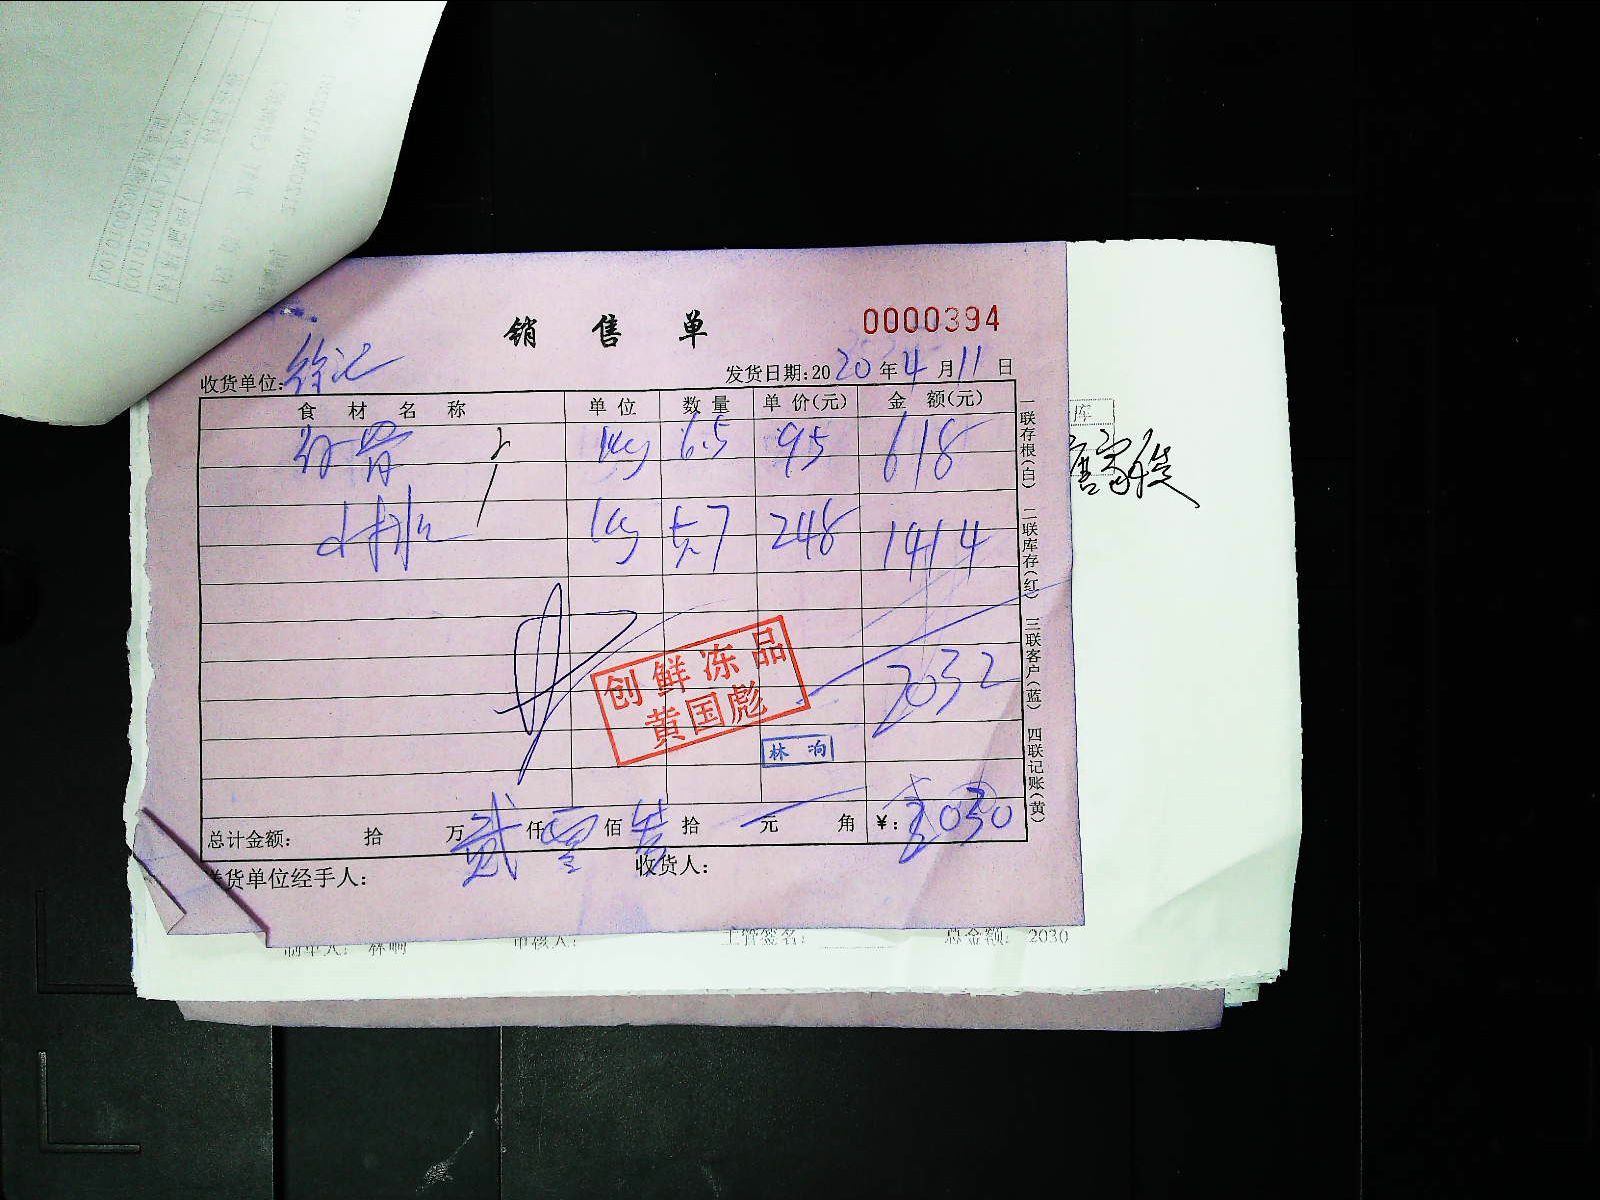 销售单
0000394
收货单位:徐记
发货日期:2020年4月11日
食材名称 单位 数量 单价(元) 金额(元)
骨 kg 6.5 95 618
小排 kg 5.7 248 1414
2032
创鲜冻品
黄国彪
林响
总计金额: 拾 万 贰 仟 零 佰 叁 拾 元 角 ¥:2030
送货单位经手人: 收货人:
一联存根(白) 二联库存(红) 三联客户(蓝) 四联记账(黄)
库
唐家
制单人: 林响 审核人: 主管签名: 总金额: 2030